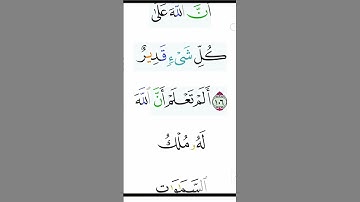 أَنَّ ٱللَّهَ عَلَىٰ
كُلِّ شَىْءٍۢ قَدِيرٌ
١٠٦ أَلَمْ تَعْلَمْ أَنَّ ٱللَّهَ
لَهُۥ مُلْكُ
ٱلسَّمَٰوَٰتِ